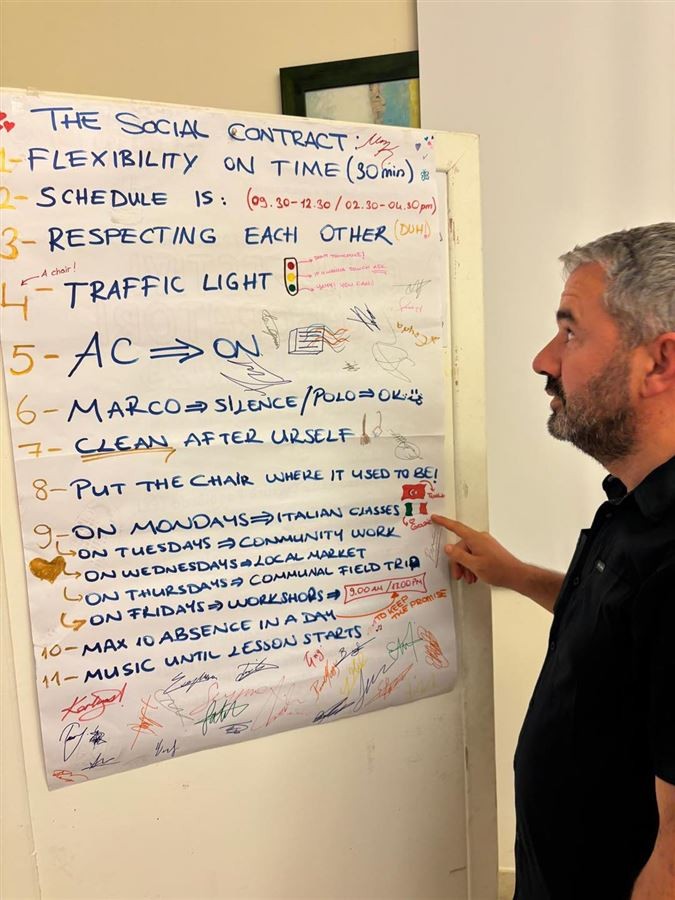 THE SOCIAL CONTRACT:
1- FLEXIBILITY ON TIME (30 min)
2- SCHEDULE IS: (09.30-12.30 / 02.30-04.30 pm)
3- RESPECTING EACH OTHER (DUH!)
A chair!
4- TRAFFIC LIGHT
5- AC ⇒ ON
6- MARCO ⇒ SILENCE / POLO ⇒ OK
7- CLEAN AFTER URSELF
8- PUT THE CHAIR WHERE IT USED TO BE!
9- ON MONDAYS ⇒ ITALIAN CLASSES
ON TUESDAYS ⇒ COMMUNITY WORK
ON WEDNESDAYS ⇒ LOCAL MARKET
ON THURSDAYS ⇒ COMMUNAL FIELD TRIP
ON FRIDAYS ⇒ WORKSHOPS ⇒ 9.00 AM /
10- MAX 10 ABSENCE IN A DAY → TO KEEP THE PROMISE
11- MUSIC UNTIL LESSON STARTS